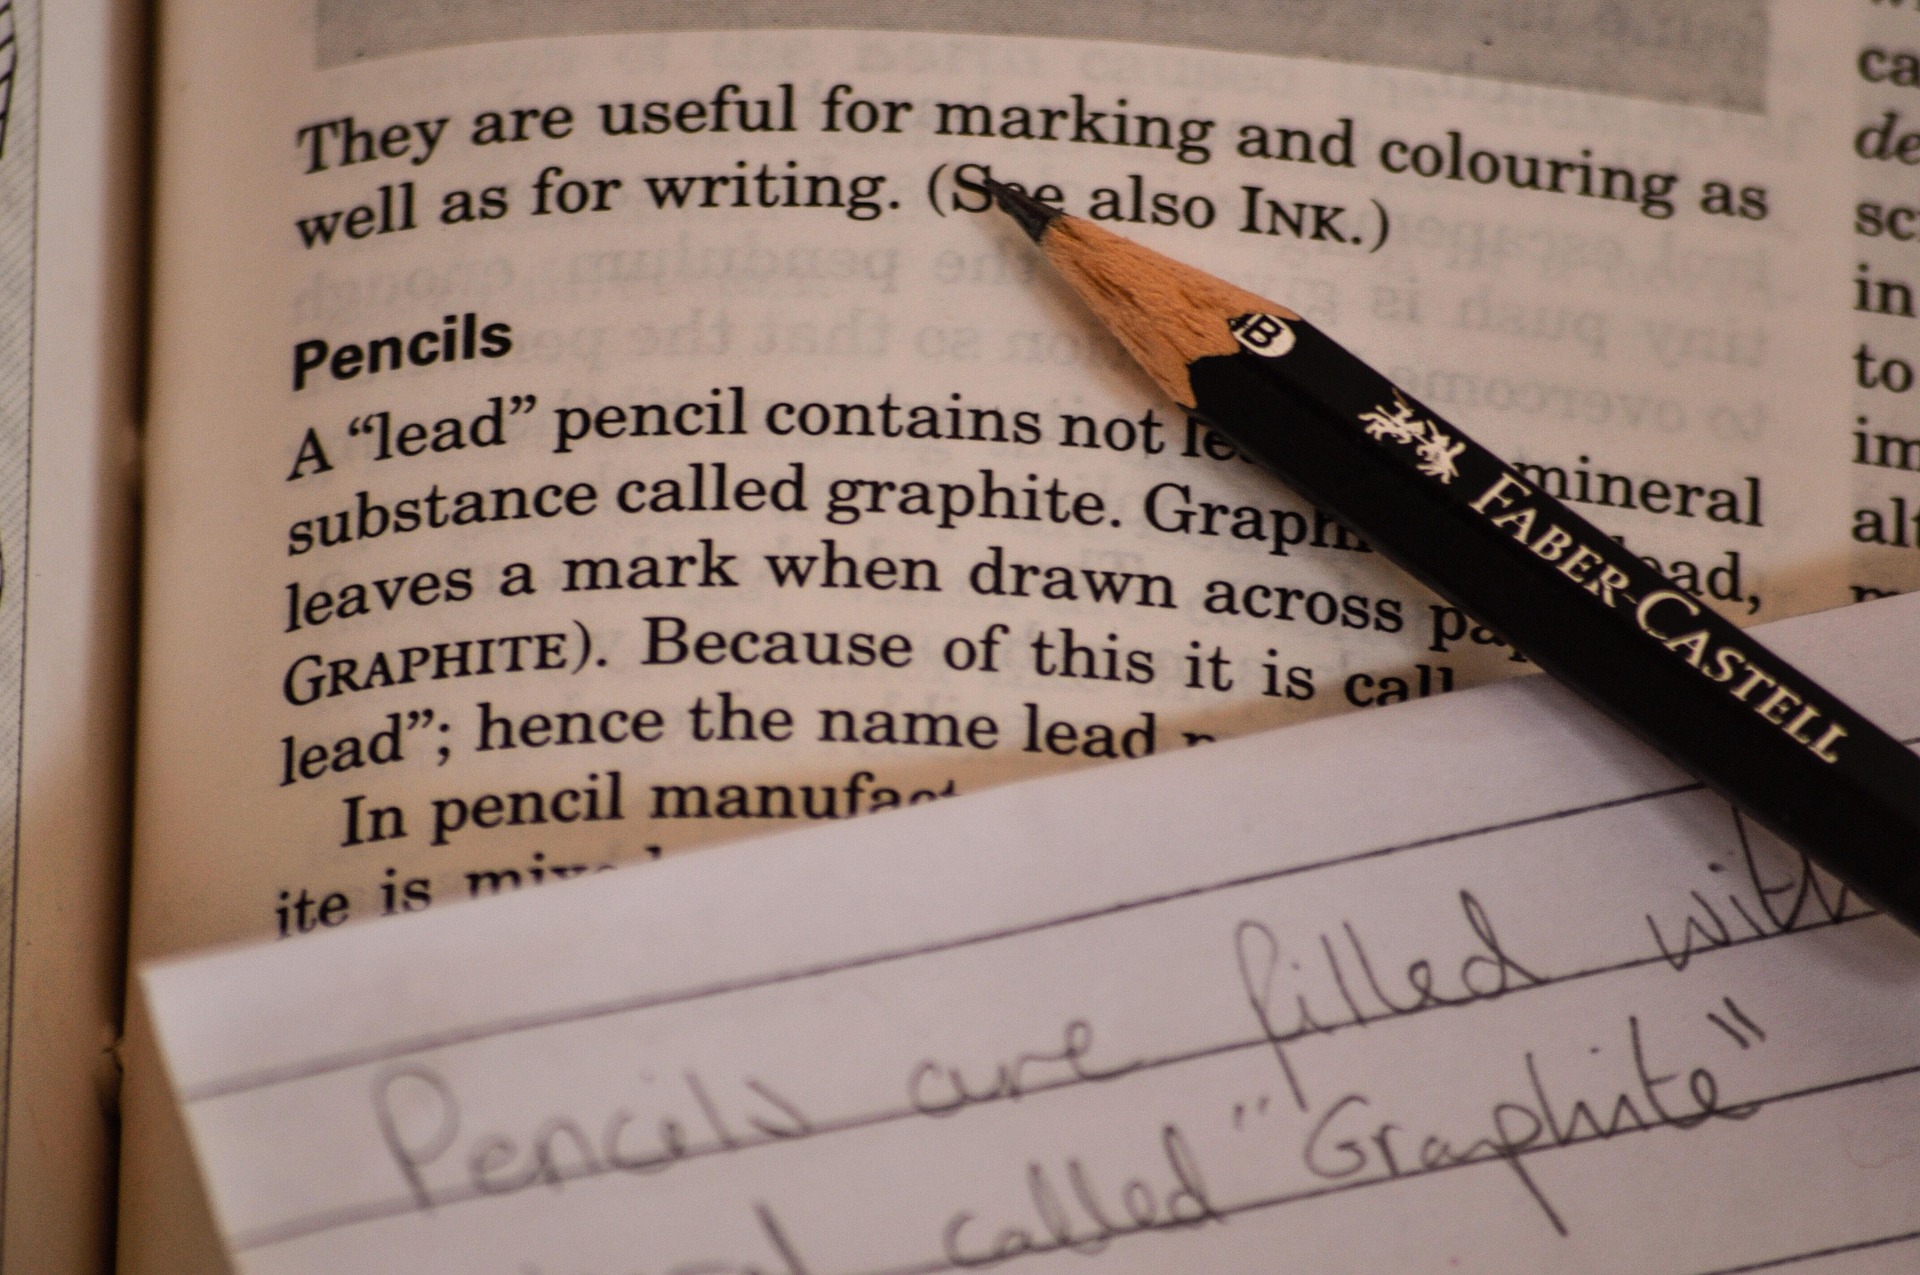 They are useful for marking and colouring as
well as for writing. (See also INK.)
Pencils
A “lead” pencil contains not mineral
substance called graphite.
leaves a mark when drawn across
GRAPHITE). Because of this it is
lead”; hence the name lead
In pencil
ite is
ca
de
sc
in
to
im
alt
B
FABER-CASTELL
Pencils are filled with
called "Graphite"